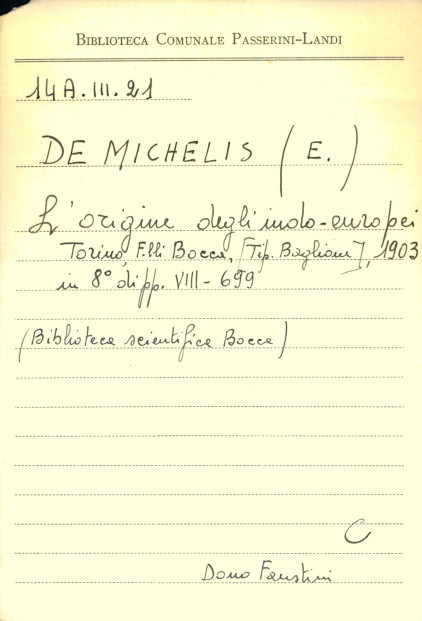 BIBLIOTECA COMUNALE PASSERINI-LANDI
14A.III.21
DE MICHELIS (E.)
L'origine degli indo-europei
Torino, F.lli Bocca, [Tip. Baglione], 1903
in 8° di pp. VIII-699
(Biblioteca scientifica Bocca)
C
Dono Faustini